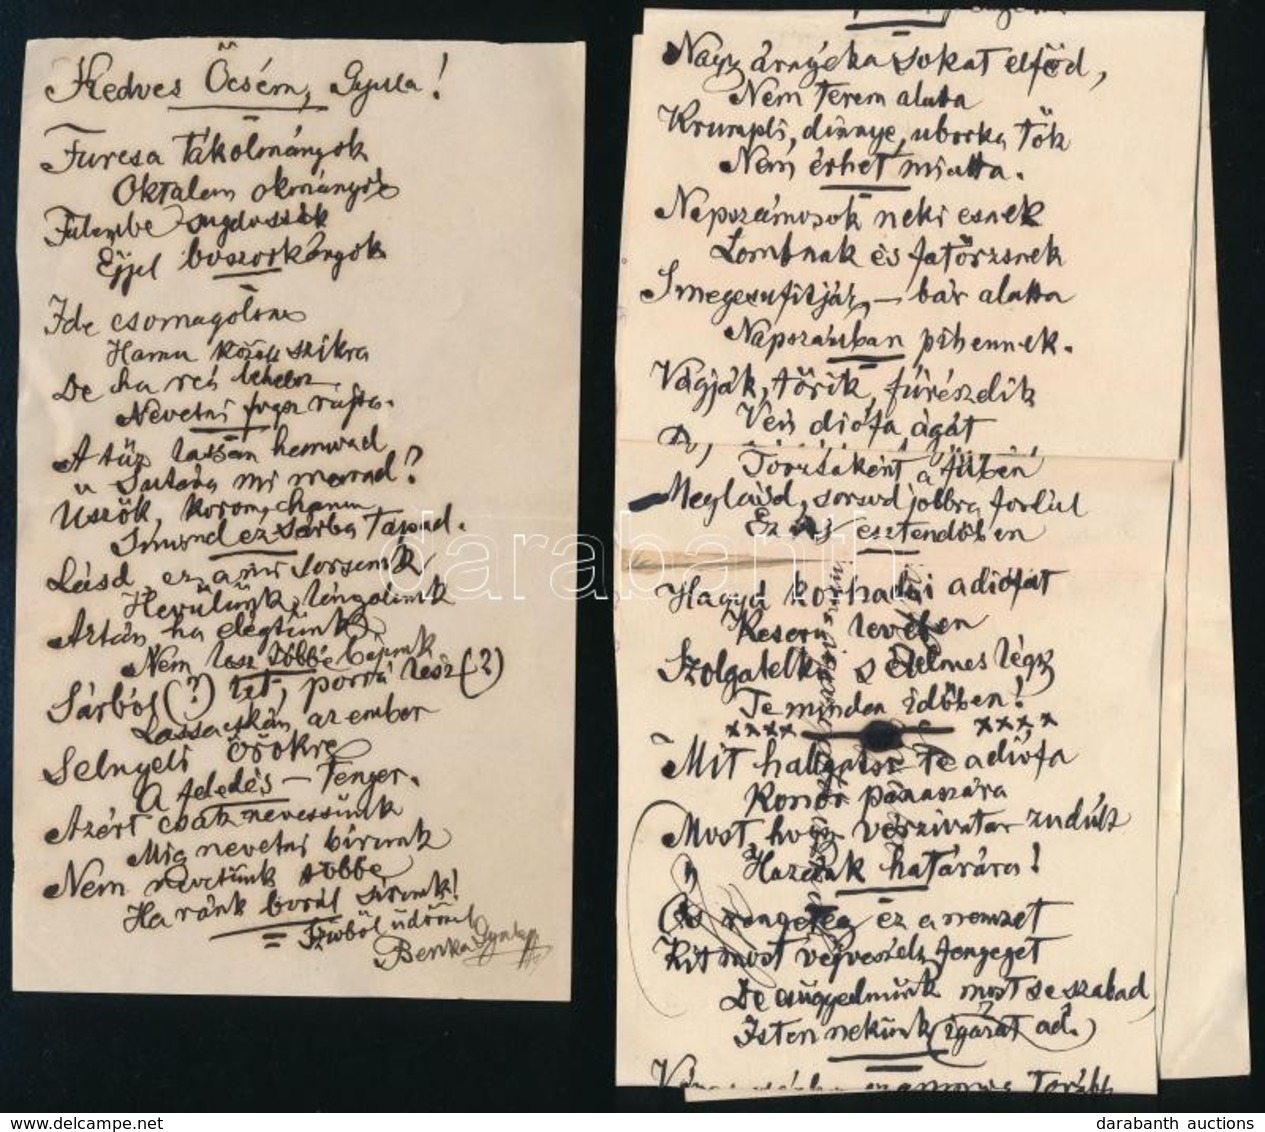 Kedves Öcsém, Gyula!
Furcsa tákolmányok
Oktalan okmányok
Fülembe sugdossák
Éjjel boszorkányok
Ide csomagolva
Hamu közt szikra
De ha reá lehelsz
Nevetni fogsz rajta.
A tűz lassan hamvad
Utána mi marad?
Üszök, korom, hamu
Smind ez sárba tapad.
Lásd, ez a mi sorsunk
Hevülünk, lángolunk
Aztán ha elégtünk
Nem lesz többé bájunk
Sárból (?) lett, porrá lesz (?)
Lassacskán az ember
Selnyeli örökre
A feledés – tenger.
Azért csak nevessünk
Míg nevetni bírunk
Nem nevetünk többé
Ha ránk borúl sírunk!
Szívből üdvözöl
Benka Gyula
Nagy árnyéka sokat elföd,
Nem terem alatta
Krumpli, dinnye, uborka, tök
Nem érhet miatta.
Napszámosok neki esnek
Lombnak és fatörzsnek
Smegcsufitják, – bár alatta
Napszállatban pihennek.
Vágják, törik, fűrészelik
Vén diófa ágát
Torzsaként a fűben
Meglásd, sorsod jobbra fordul
Ez új esztendőben
Hagyd korhadni a diófát
Keserű levében
Szolgalelkű s élelmes légy
Te minden időben!
xxxx xxxx
Mit hallgatsz te a diófa
Konor panaszára
Most hogy vérzivatar zudúlt
Hazánk határára!
És rengeteg ez a nemzet
Kit most végveszély fenyeget
De csüggednünk most se szabad
Isten nekünk (igazat ad.)
darabanth
darabanth auctions